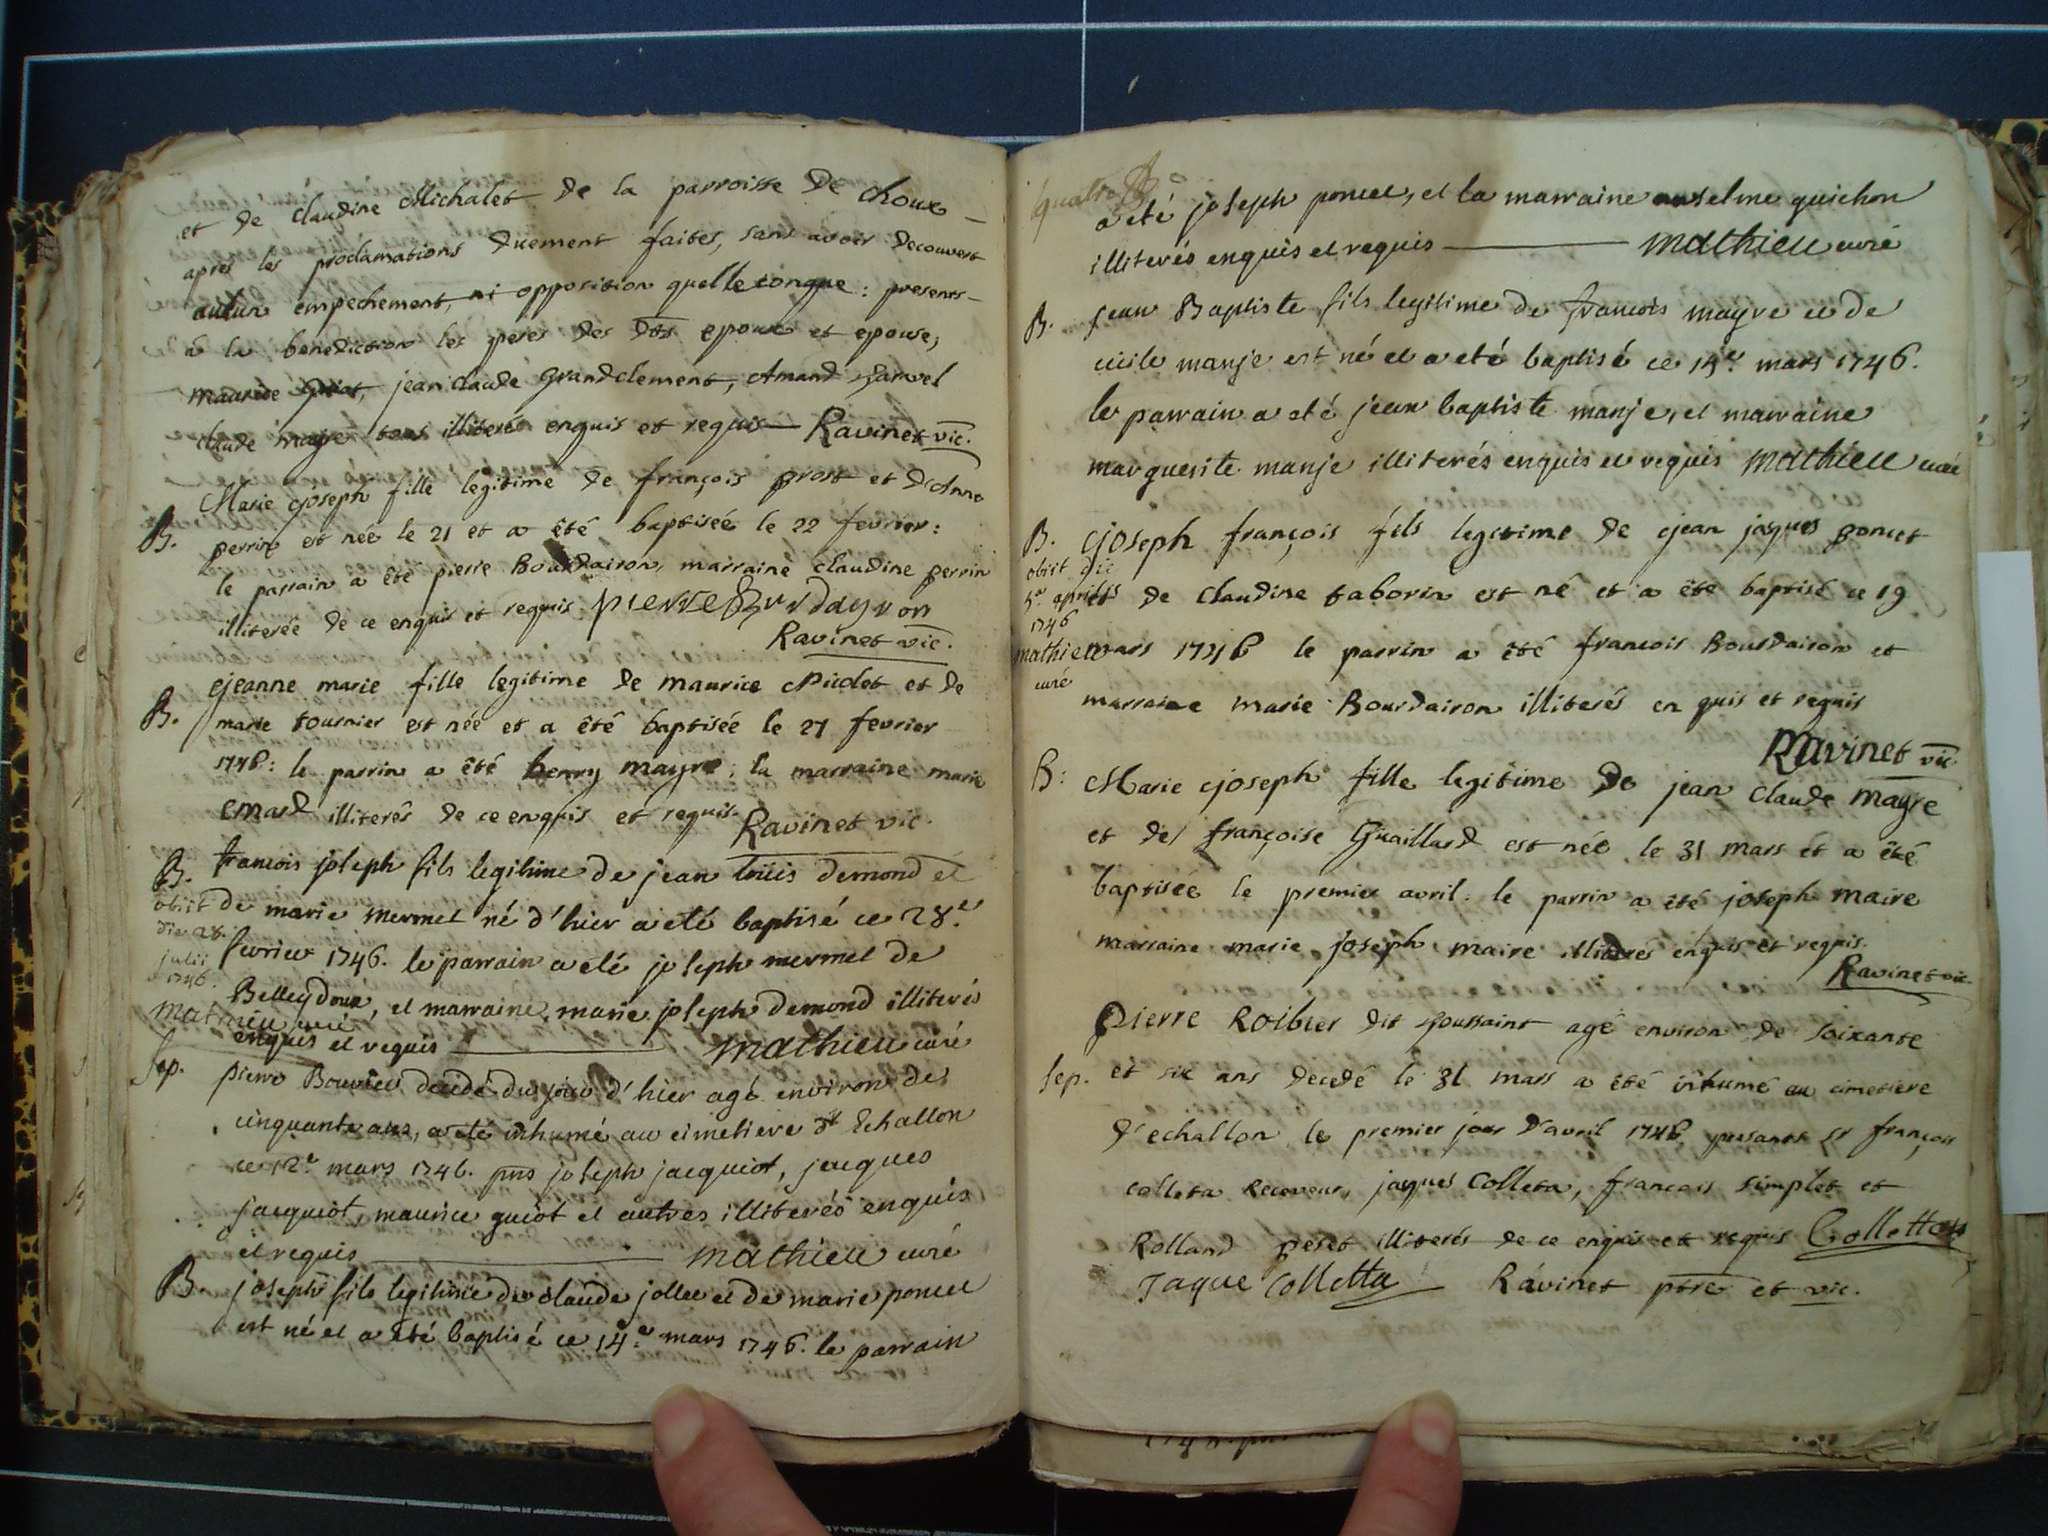 et de claudine Michalet de la parroisse de choux
apres les proclamations duement faites, sans avoir decouvert
aucun empechement, ni opposition quelle conque : presents
a la benediction les peres des dts epoux et epouse,
maurice guiot, jean claude grandclement, Amand
claude mayre tous illiterés enquis et requis — Ravinet vic.
B. Marie joseph fille legitime de françois prost et d'Anne
perrin est née le 21 et a été baptisée le 22 fevrier :
le parrain a été pierre Bourdairon, marraine claudine perrin
illiterée de ce enquis et requis pierre Bourdayron
Ravinet vic.
B. jeanne marie fille legitime de maurice Nicolet et de
marie tournier est née et a été baptisée le 27 fevrier
1746 : le parrin a été henry mayre ; la marraine marie
emard illiterés de ce enquis et requis. Ravinet vic.
B. francois joseph fils legitime de jean loüis demond et
obiit die 28. julii 1746. Mathieu curé
de marie mermet né d'hier a eté baptisé ce 28.e
fevrier 1746. le parrain a eté joseph mermet de
Belleydoux, et marraine marie joseph demond illiterés
enquis et requis — mathieu curé
Sep. pierre Bouvier decedé du jour d'hier agé environ de
cinquante ans, a eté inhumé au cimetiere d'Echallon
ce 12.e mars 1746. pns joseph jacquiot, jacques
jacquiot, maurice guiot et autres illiterés enquis
et requis — mathieu curé
B. joseph fils legitime de claude jollet et de marie poncet
est né et a été baptisé ce 14.e mars 1746. le parrain
quatre
a eté joseph poncet, et la marraine anselme guichon
illiterés enquis et requis — mathieu curé
B. jean Baptiste fils legitime de francois mayre et de
cicile manje est né et a eté baptisé ce 15.e mars 1746.
le parrain a eté jean baptiste manje, et marraine
marguerite manje illiterés enquis et requis mathieu curé
B. joseph françois fils legitime de jean jaques poncet
obiit die 5.a aprilis 1746 mathieu curé
et de claudine taborin est né et a été baptisé ce 19
mars 1746 le parrin a été francois Bourdairon et
marraine marie Bourdairon illiterés en quis et requis
Ravinet vic.
B : Marie joseph fille legitime de jean claude mayre
et de françoise Guaillard est née le 31 mars et a été
baptisée le premier avril. le parrin a été joseph maire
marraine marie joseph maire illiterés enquis et requis.
Ravinet vic.
Pierre Roibier dit toussaint agé environ de soixante
Sep. et six ans decedé le 31 mars a été inhumé au cimetiere
d'echallon le premier jour d'avril 1746 presants sr françois
colleta receveur, jaques Colleta, francois simplet et
Rolland petit illiterés de ce enquis et requis Collettaz
Jaque Colletta Ravinet ptre et vic.